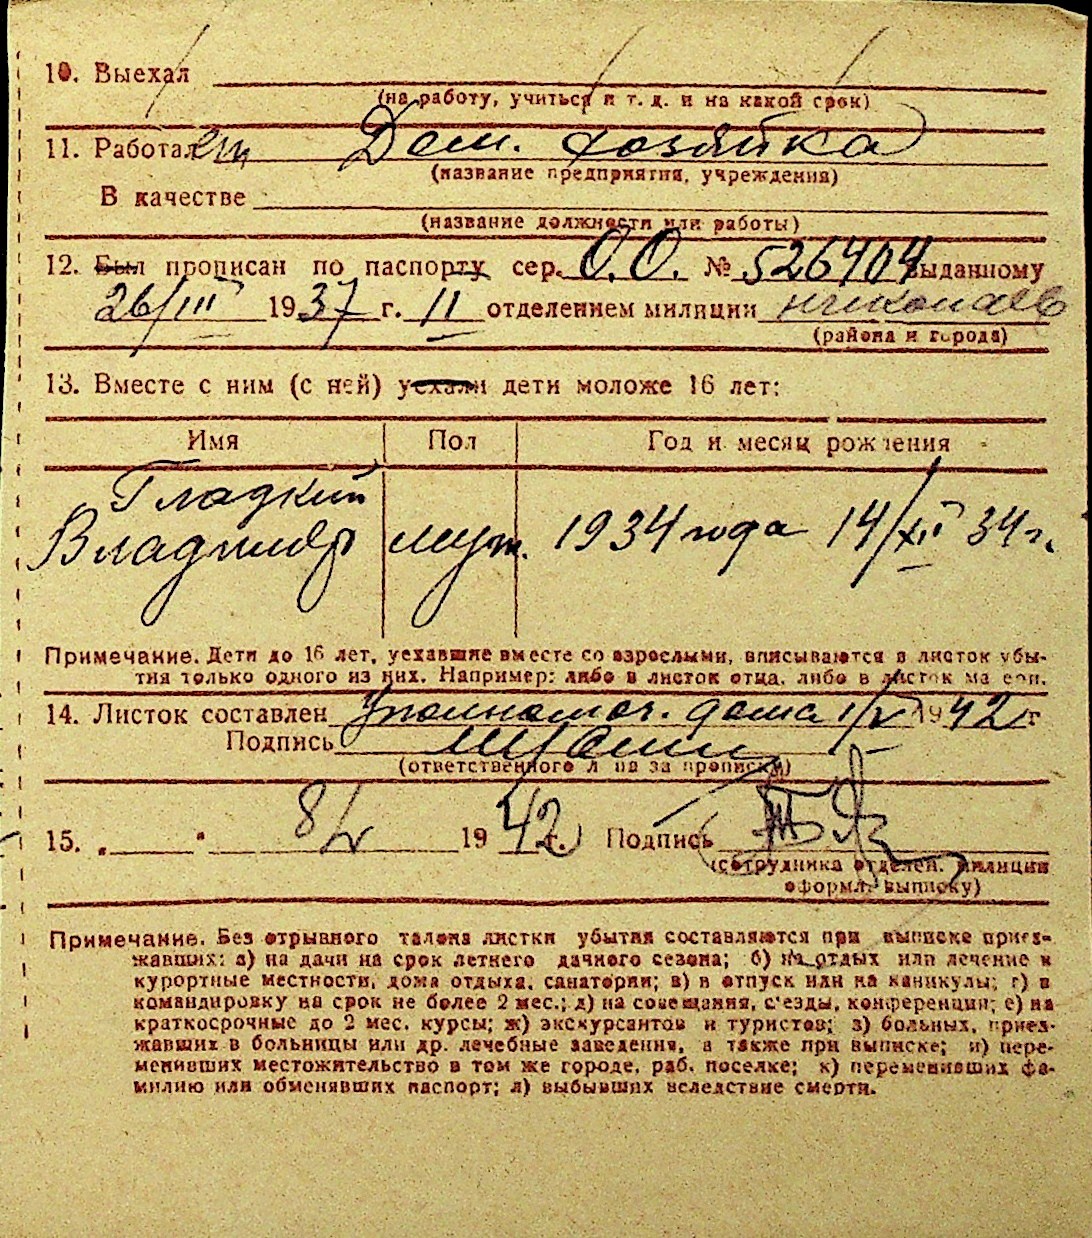 10. Выехал
(на работу, учиться и т. д. и на какой срок)
11. Работает Дом. хозяйка
(название предприятия, учреждения)
В качестве
(название должности или работы)
12. Был прописан по паспорту сер. О.О. № 526404 выданному
26/III 1937 г. II отделением милиции Николаев
(района и города)
13. Вместе с ним (с ней) уехали дети моложе 16 лет:
Имя Пол Год и месяц рождения
Гладкий
Владимир муж. 1934 года 14/XII 34 г.
Примечание. Дети до 16 лет, уехавшие вместе со взрослыми, вписываются в листок убы-
тия только одного из них. Например: либо в листок отца, либо в листок матери.
14. Листок составлен Уполномоч. дома 1/V 1942 г
Подпись
(ответственного лица за прописку)
15. „ " 8/V 1942 г. Подпись
(сотрудника отделен. милиции
оформл. выписку)
Примечание. Без отрывного талона листки убытия составляются при выписке приез-
жавших: а) на дачи на срок летнего дачного сезона; б) на отдых или лечение в
курортные местности, дома отдыха, санатории; в) в отпуск или на каникулы; г) в
командировку на срок не более 2 мес.; д) на совещания, с'езды, конференции; е) на
краткосрочные до 2 мес. курсы; ж) экскурсантов и туристов; з) больных, приез-
жавших в больницы или др. лечебные заведения, а также при выписке; и) пере-
менивших местожительство в том же городе, раб. поселке; к) переменивших фа-
милию или обменявших паспорт; л) выбывших вследствие смерти.